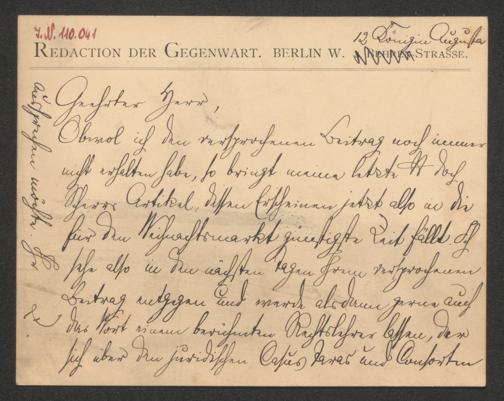 J.N. 110.041
12 Königin Augusta
REDACTION DER GEGENWART. BERLIN W. STRASSE.
Geehrter Herr,
Obwol ich den versprochenen Beitrag noch immer
nicht erhalten habe, so bringt meine letzte N doch
Scherrs Artikel, dessen Erscheinen jetzt also in die
für den Weihnachtsmarkt günstigste Zeit fällt. Ich
sehe also in den nächsten Tagen Ihrem versprochenen
Beitrag entgegen und werde alsdann gerne auch
das Wort einem berühmten Rechtslehrer lassen, der
sich über den juridischen Casus Taras und Consorten
aussprechen möchte. Ihr